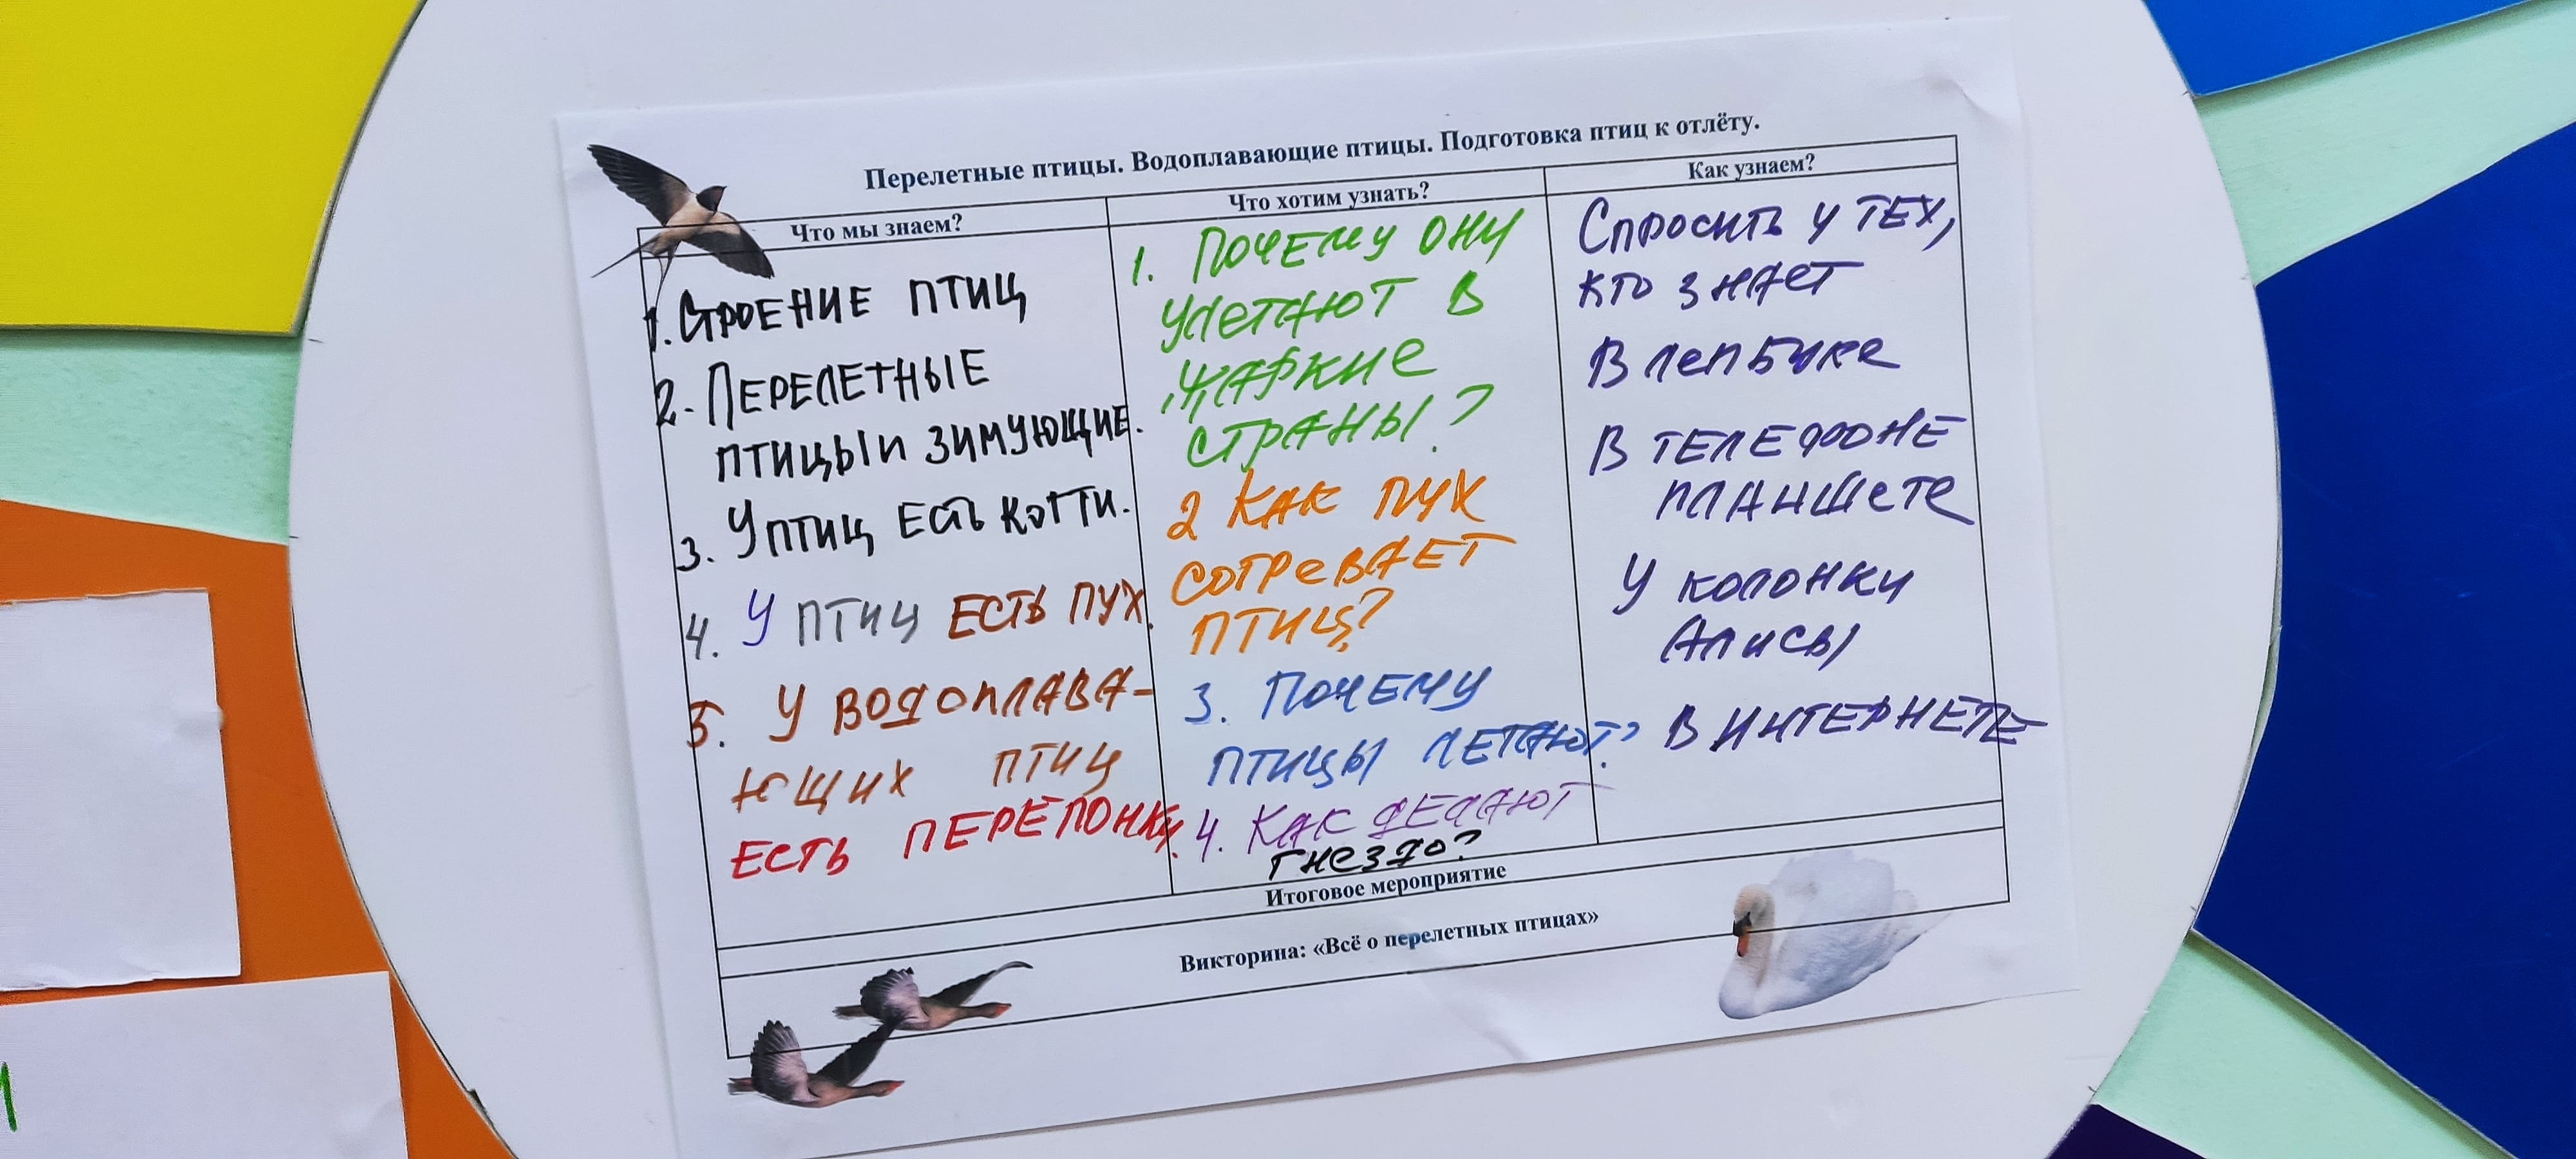 Перелетные птицы. Водоплавающие птицы. Подготовка птиц к отлёту.
Что мы знаем?
1. Строение птиц
2. Перелетные
птицы и зимующие.
3. У птиц есть когти.
4. У птиц есть пух.
5. У водоплава-
ющих птиц
есть перепонки.
Что хотим узнать?
1. Почему они
улетают в
жаркие
страны?
2 Как пух
согревает
птиц?
3. Почему
птицы летают?
4. Как делают
гнездо?
Как узнаем?
Спросить у тех,
кто знает
В лепбуке
В телефоне
планшете
У колонки
Алисы
В интернете
Итоговое мероприятие
Викторина: «Всё о перелетных птицах»